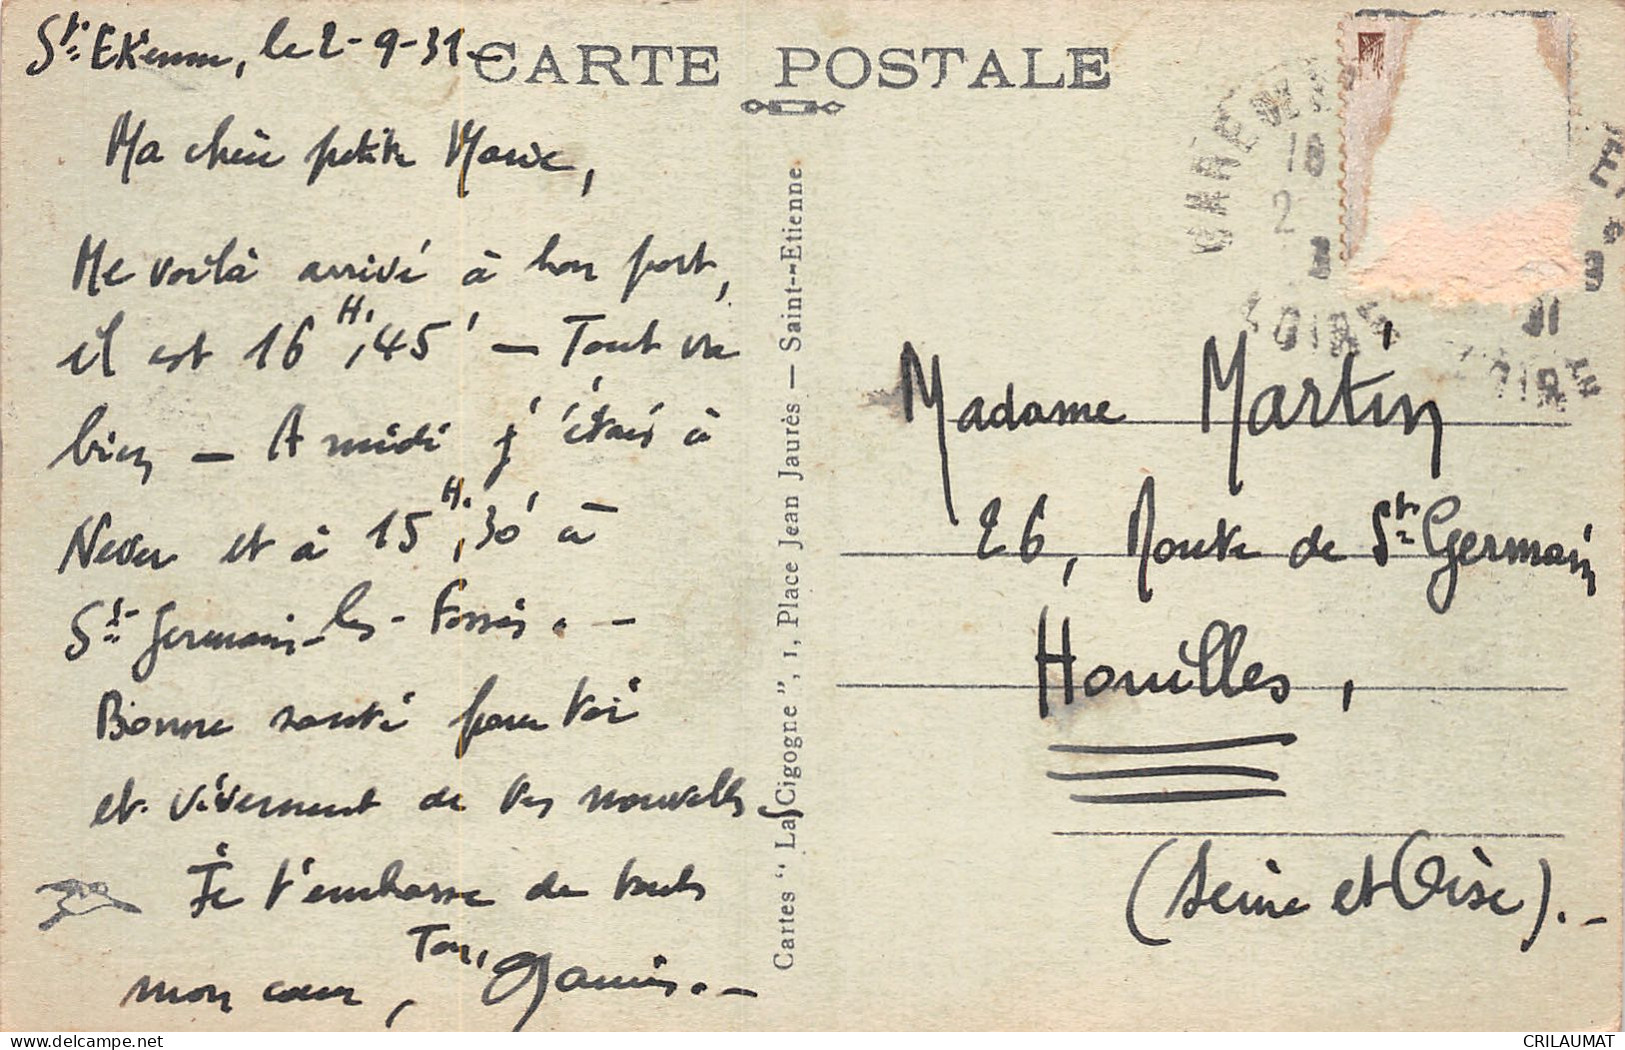 St. Etienne, le 2-9-31.
CARTE POSTALE
Ma chère petite Marie,
Me voilà arrivé à bon port,
il est 16 H, 45' - Tout va
bien - A midi j'étais à
Never et à 15 H, 30' à
St. Germain-les-Fossés. -
Bonne santé pour toi
et vivement de tes nouvelles.
Je t'embrasse de tout
mon cœur, Ton,
Cartes "La Cigogne", 1, Place Jean Jaurès — Saint-Etienne
18
2
LOIRE
Madame Martin
26, Route de St. Germain
Houilles,
(Seine et Oise).-
CRILAUMAT